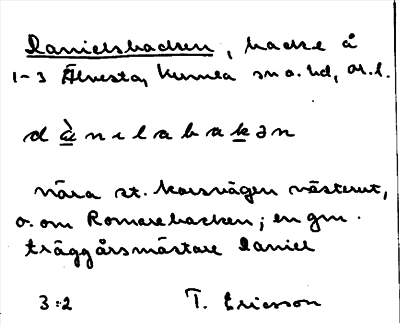 Danielsbacken, backe å
1-3 Älvesta, Kumla sn o. hd, Ör. l.
dà̱nɩlabaḵən
nära st. korsvägen västerut,
o. om Romarebacken; en gm.
träggårsmästare Daniel
3:2 T. Ericsson